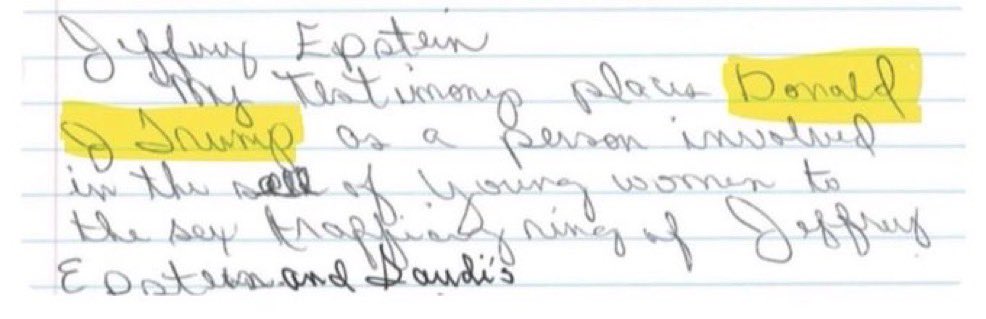 Jeffrey Epstein
My testimony places Donald
J Trump as a person involved
in the sell of young women to
the sex traffficing ring of Jeffrey
Epstein and Saudi's